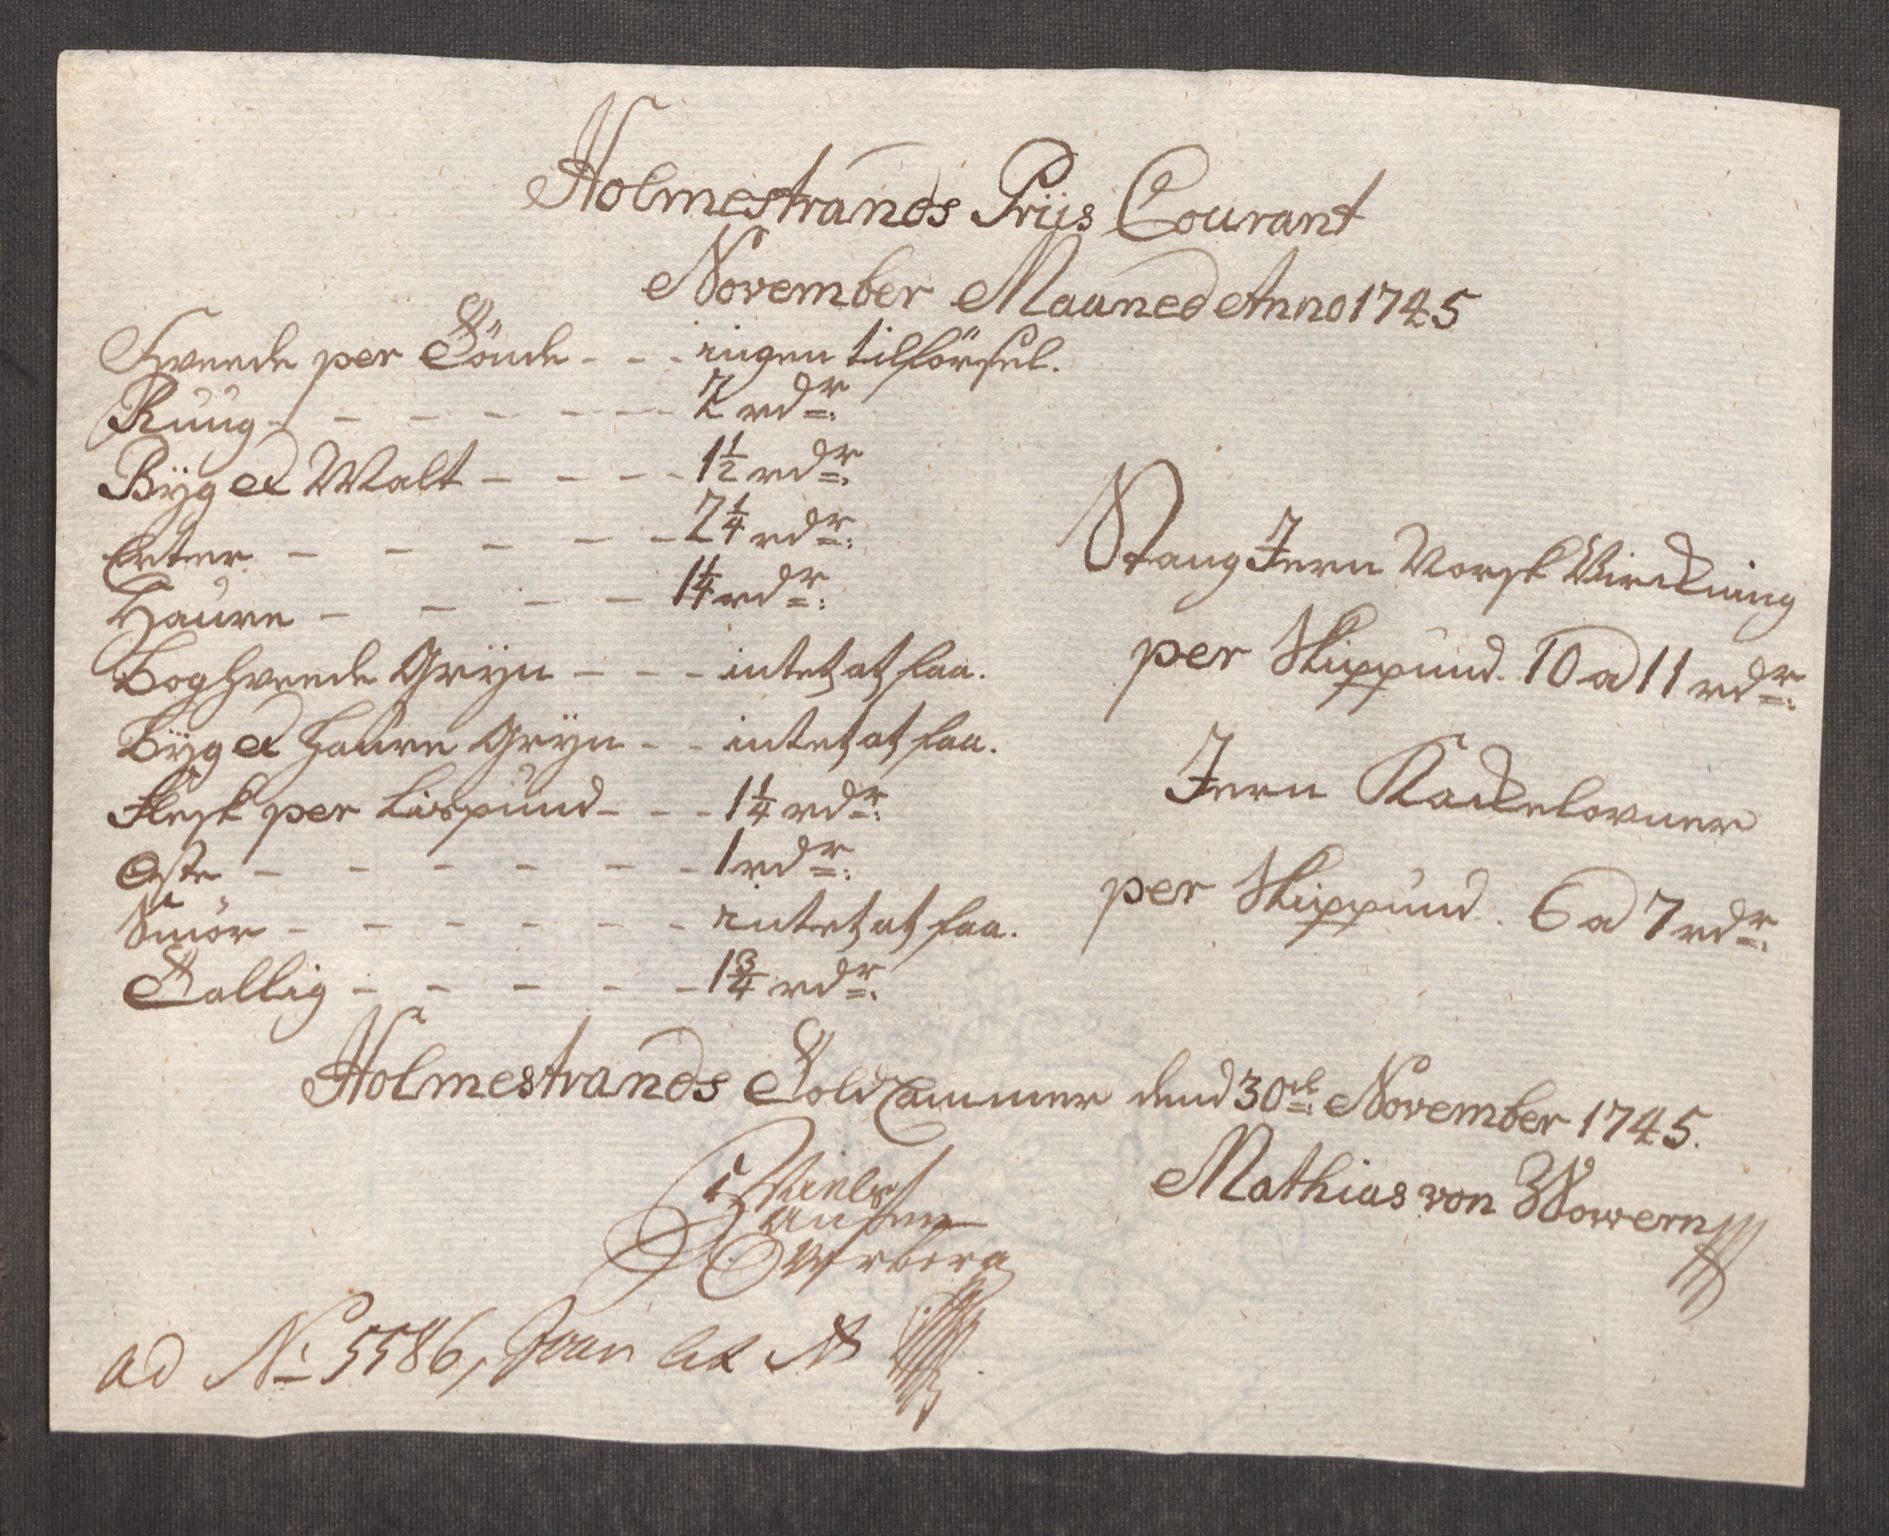 Holmestrands Priis Courant
November Maaned Anno 1745
Hveede per Tönde - - - ingen tilförsel.
Ruug - - - - - - - 2 rdr:
Bÿg et Malt - - - - 1½ rdr:
Erter - - - - - 2¼ rdr:
Haure - - - - 1¼ rdr:
Boghveede Grÿn - - - intet at faa.
Bÿg et Haure Grÿn - - intet at faa.
Flesk per Lispund - - - 1¼ rdr:
Oste - - - - - - 1 rdr:
Smör - - - - - - intet at faa.
Tallig - - - - - 1¾ rdr:
Stang Jern Norsk Virckning
per Skippund. 10 a 11 rdr:
Jern Kackelovner
per Skippund. 6 a 7 rdr:
Holmestrands Told Cammer dend 30te: November 1745.
Mathias von Wowern
Niels
Hansen
ad No. 5586,